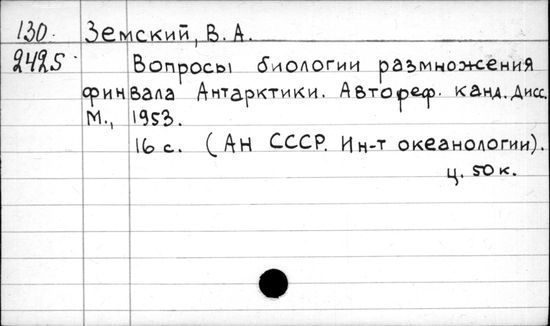 130. Земский, В. А.
2425. Вопросы биологии размножения
финвала Антарктики. Автореф. канд. дисс.
М., 1953.
16 с. (АН СССР. Ин-т океанологии).
ц. 50 к.